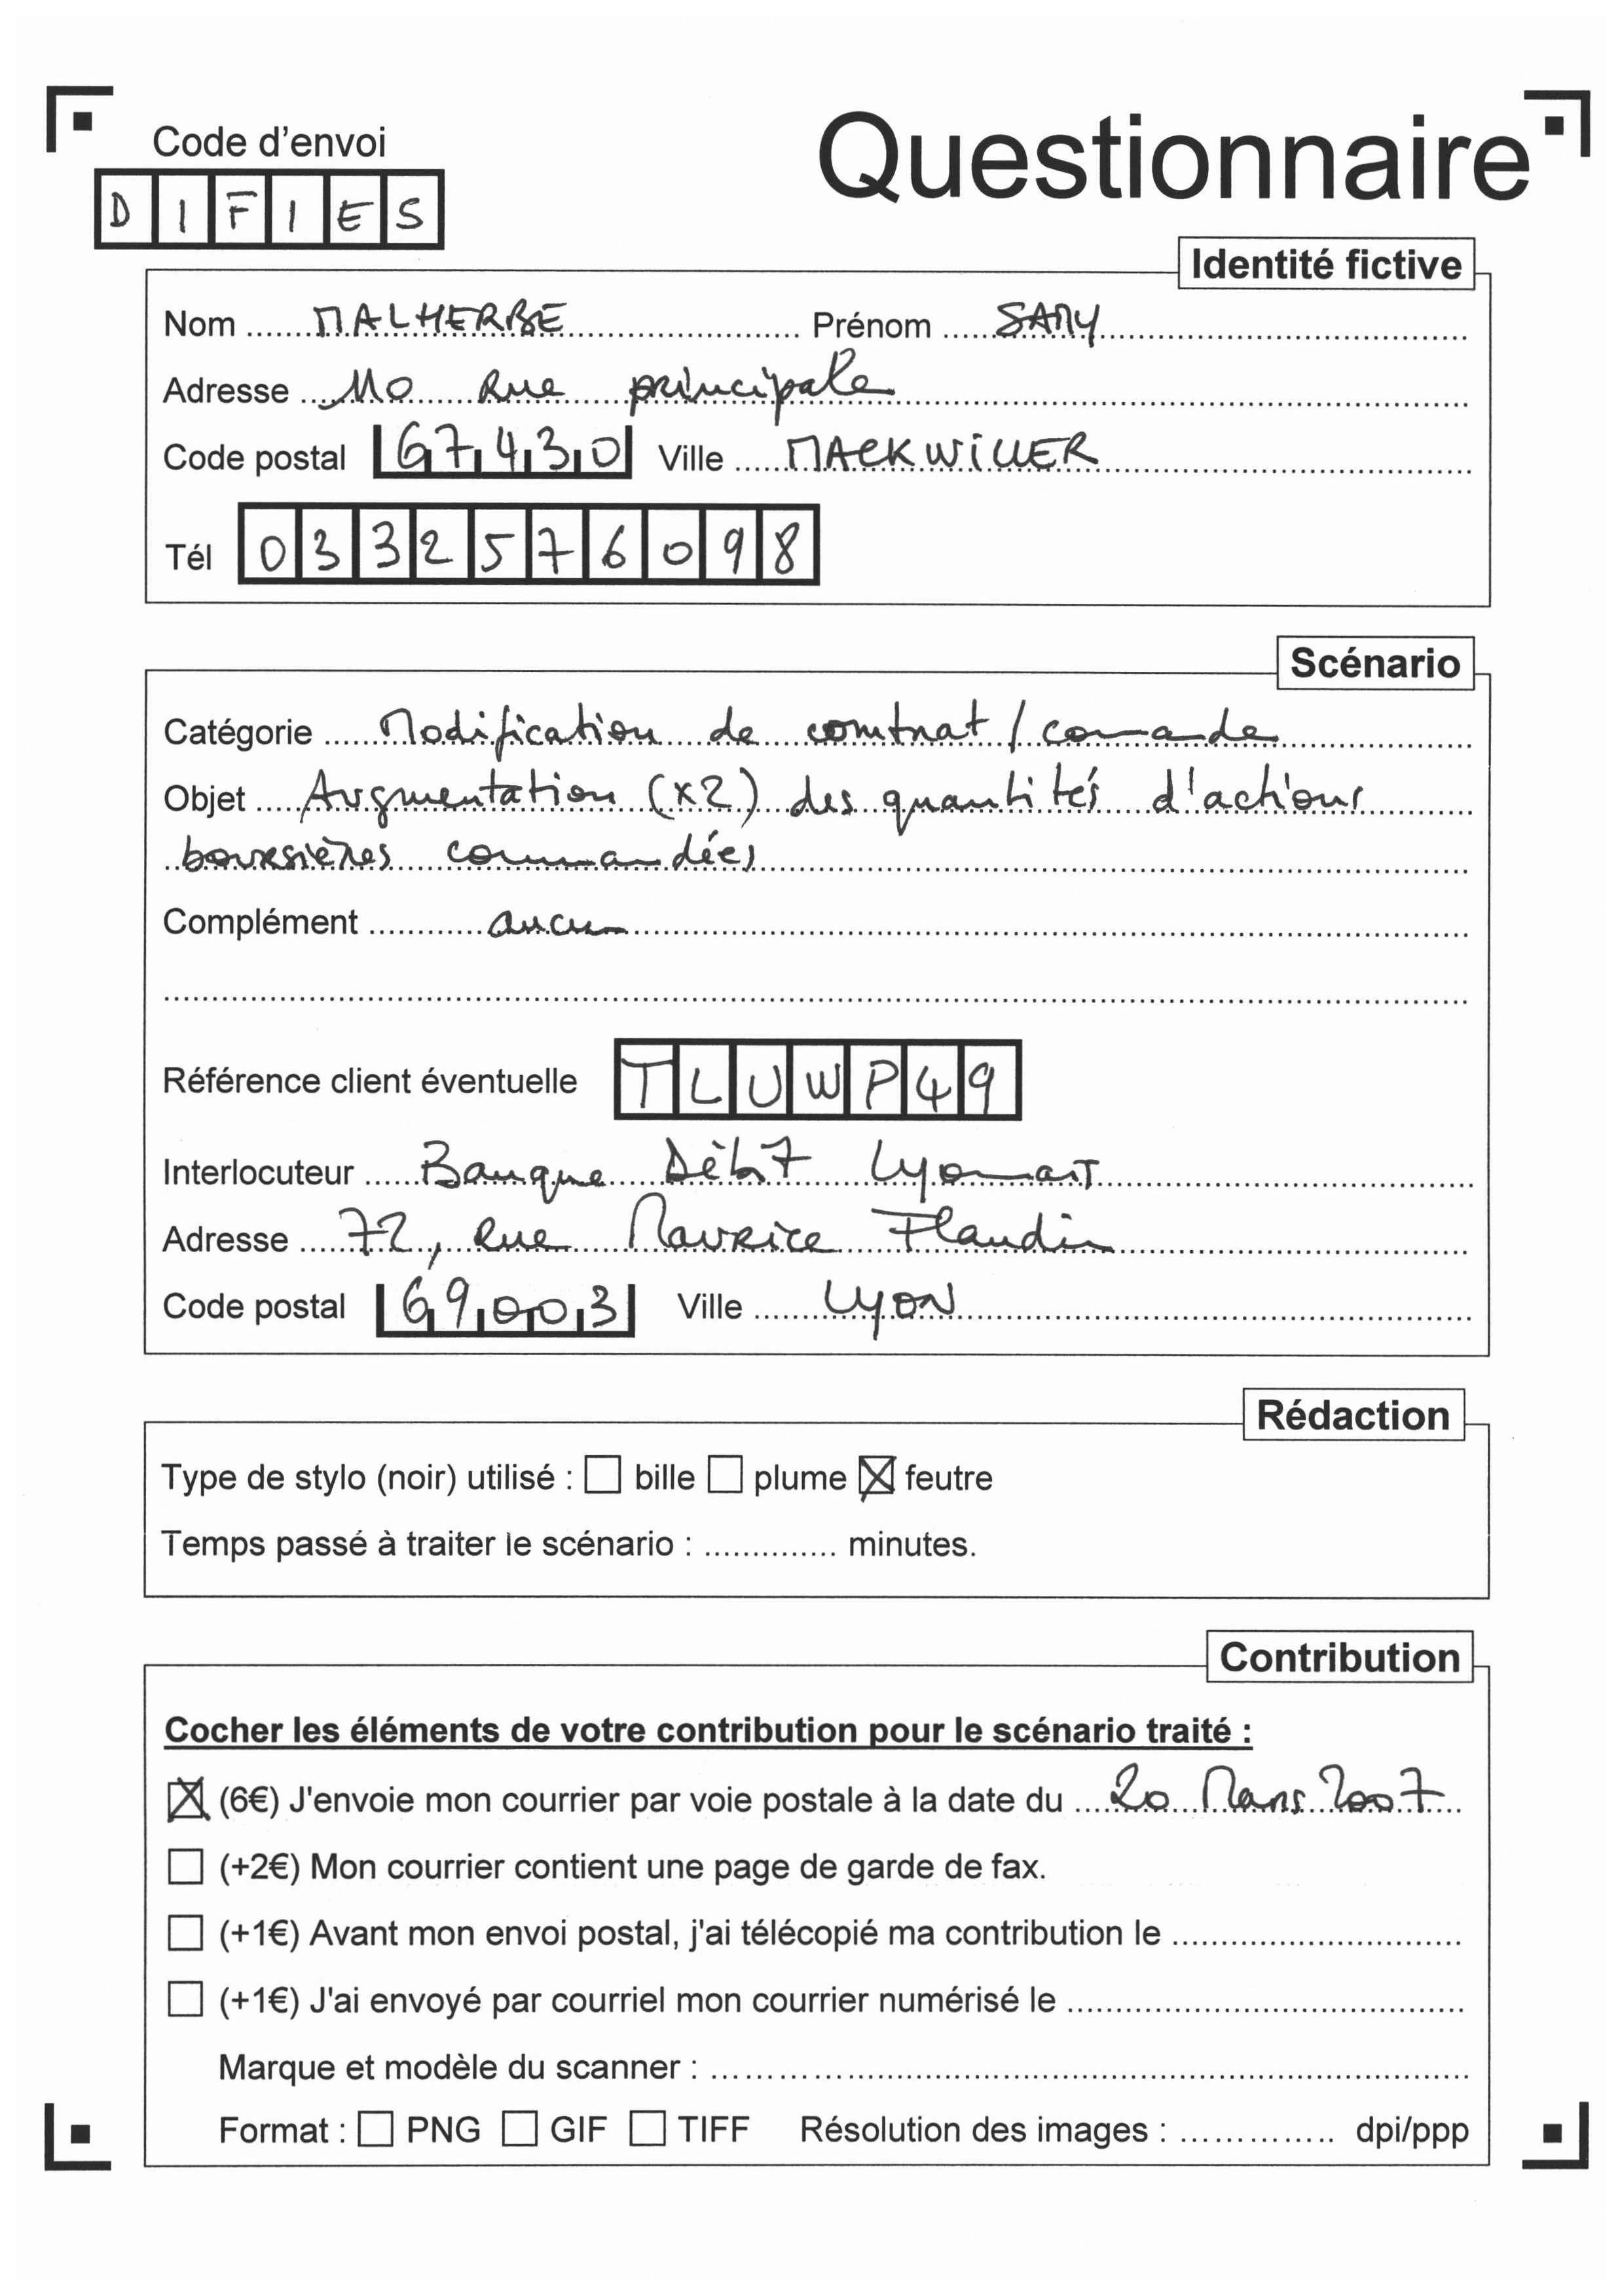 Code d'envoi
Questionnaire
DIFIES
Identité fictive
Nom MALHERBE Prénom SAMY
Adresse 110 Rue principale
Code postal 67430 Ville MACKWILLER
Tél 0332576098
Scénario
Catégorie Modification de contrat / commande
Objet Augmentation (x2) des quantités d'actions
boursières commandées
Complément aucun
Référence client éventuelle TLUWP49
Interlocuteur Banque Débit Lyonnais
Adresse 72, Rue Maurice Flandin
Code postal 69003 Ville Lyon
Rédaction
Type de stylo (noir) utilisé : ☐ bille ☐ plume ☒ feutre
Temps passé à traiter le scénario : .............. minutes.
Contribution
Cocher les éléments de votre contribution pour le scénario traité :
☒ (6€) J'envoie mon courrier par voie postale à la date du 20 Mars 2007
☐ (+2€) Mon courrier contient une page de garde de fax.
☐ (+1€) Avant mon envoi postal, j'ai télécopié ma contribution le ..............................
☐ (+1€) J'ai envoyé par courriel mon courrier numérisé le ........................................
Marque et modèle du scanner : ..............................................................................
Format : ☐ PNG ☐ GIF ☐ TIFF Résolution des images : .............. dpi/ppp